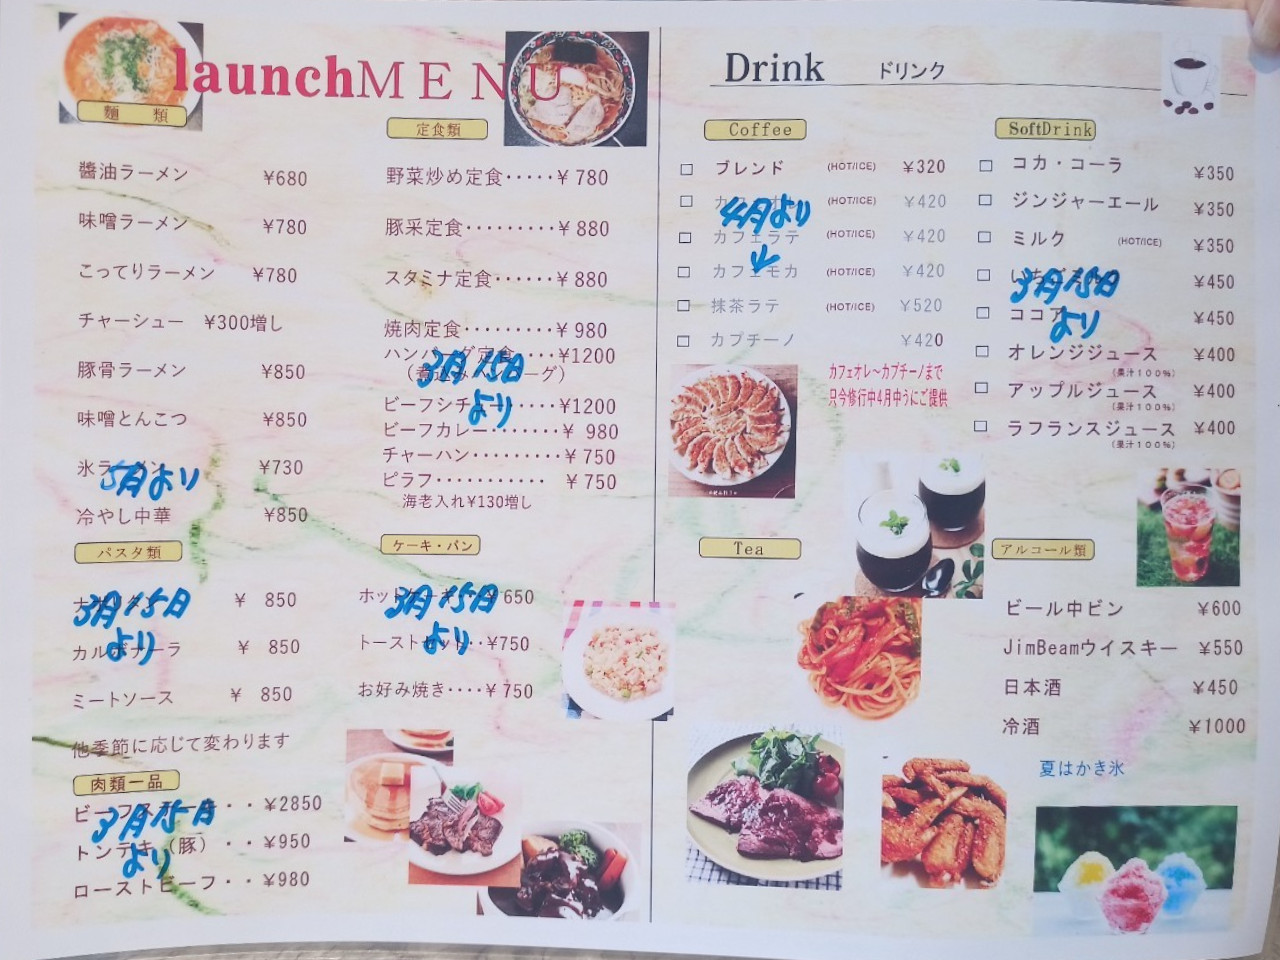 launchMENU
麺 類
醬油ラーメン ¥680
味噌ラーメン ¥780
こってりラーメン ¥780
チャーシュー ¥300増し
豚骨ラーメン ¥850
味噌とんこつ ¥850
氷ラーメン ¥730
5月より
冷やし中華 ¥850
パスタ類
ナポリタン ¥ 850
3月15日
より
カルボナーラ ¥ 850
ミートソース ¥ 850
他季節に応じて変わります
肉類一品
ビーフステーキ・・¥2850
3月15日
より
トンテキ（豚）・・¥950
ローストビーフ・・¥980
定食類
野菜炒め定食・・・・・¥ 780
豚采定食・・・・・・・・・¥ 880
スタミナ定食・・・・・・¥ 880
焼肉定食・・・・・・・・・¥ 980
ハンバーグ定食・・・・¥1200
（煮込みハンバーグ）
3月15日
より
ビーフシチュー・・・・・¥1200
ビーフカレー・・・・・・・¥ 980
チャーハン・・・・・・・・・¥ 750
ピラフ・・・・・・・・・・・ ¥ 750
海老入れ¥130増し
ケーキ・パン
ホットケーキ・・¥650
3月15日
より
トーストセット・・¥750
お好み焼き・・・・¥ 750
Drink ドリンク
Coffee
□ ブレンド (HOT/ICE) ¥320
□ カフェオレ (HOT/ICE) ¥420
4月より
↓
□ カフェラテ (HOT/ICE) ¥420
□ カフェモカ (HOT/ICE) ¥420
□ 抹茶ラテ (HOT/ICE) ¥520
□ カプチーノ ¥420
カフェオレ～カプチーノまで
只今修行中4月中うにご提供
Tea
SoftDrink
□ コカ・コーラ ¥350
□ ジンジャーエール ¥350
□ ミルク (HOT/ICE) ¥350
□ いちご ¥450
3月15日
より
□ ココア ¥450
□ オレンジジュース ¥400
（果汁100%）
□ アップルジュース ¥400
（果汁100%）
□ ラフランスジュース ¥400
（果汁100%）
アルコール類
ビール中ビン ¥600
JimBeamウイスキー ¥550
日本酒 ¥450
冷酒 ¥1000
夏はかき氷